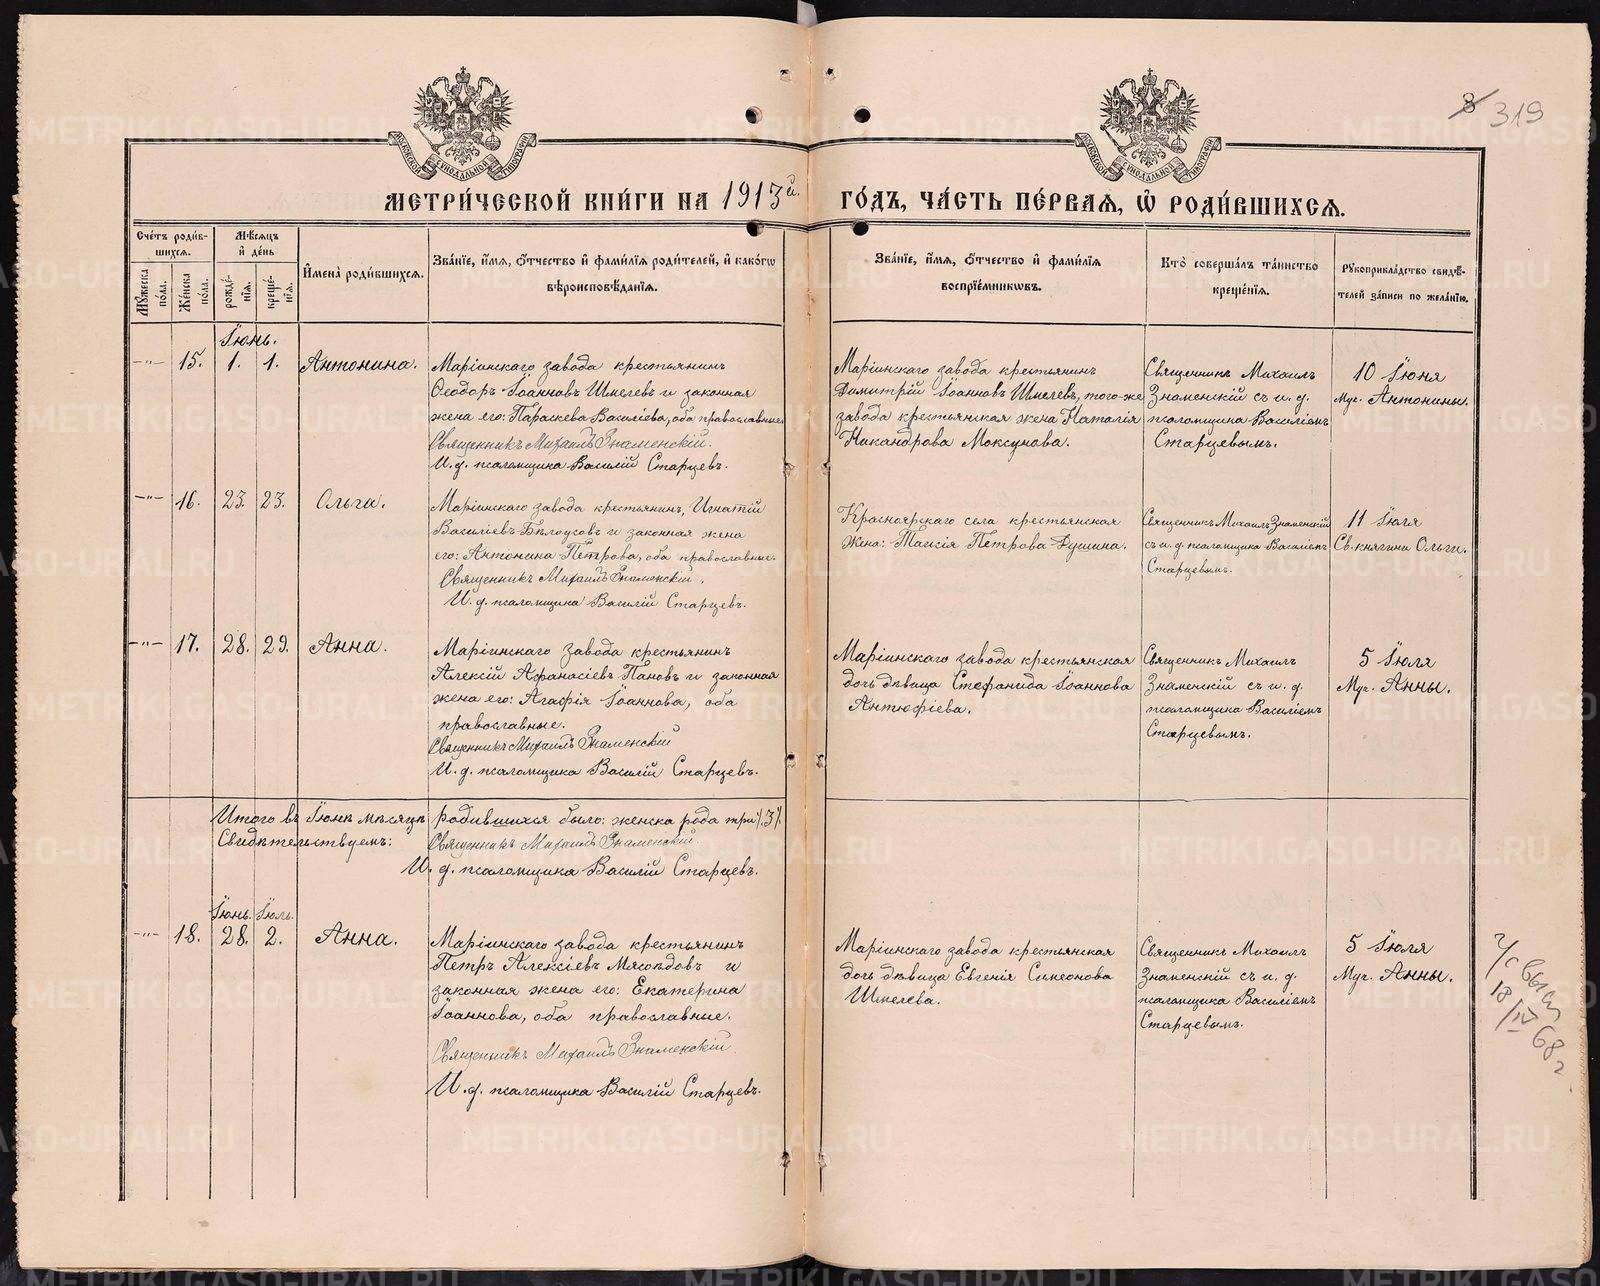 8 319
МОСКОВСКОЙ СѴНОДАЛЬНОЙ ТИПОГРАФІИ
МОСКОВСКОЙ СѴНОДАЛЬНОЙ ТИПОГРАФІИ
МЕТРИ́ЧЕСКОЙ КНИ́ГИ НА 1913й. ГО́ДЪ, ЧА́СТЬ ПЕ́РВАѦ, Ѡ҆ РОДИ́ВШИХСѦ.
Сче́тъ роди́в-
шихсѧ.
Мꙋ́жеска по́ла.
Же́нска по́ла.
Мѣ́сѧцъ
и҆ де́нь
рожде́-
нїѧ.
креще́-
нїѧ.
И҆мена̀ роди́вшихсѧ.
Зва́нїе, и҆́мѧ, ѻ҆́тчество и҆ фами́лїѧ роди́телей, и҆ како́гѡ
вѣроисповѣ́данїѧ.
Зва́нїе, и҆́мѧ, ѻ҆́тчество и҆ фами́лїѧ
воспрїе́мникѡвъ.
Кто̀ соверша́лъ та́инство
креще́нїѧ.
Рꙋкоприкла́дство свидѣ́-
телей за́писи по жела́нїю.
Іюнь.
-"- 15. 1. 1. Антонина.
Маріинскаго завода крестьянинъ
Ѳеодоръ Іоанновъ Шмелевъ и законная
жена его: Параскева Василіева, оба православные
Священникъ Михаилъ Знаменскій.
И. д. псаломщика Василій Старцевъ.
Маріинскаго завода крестьянинъ
Димитрій Іоанновъ Шмелевъ, того-же
завода крестьянская жена Наталія
Никандрова Моксунова.
Священникъ Михаилъ
Знаменскій съ и. д.
псаломщика Василіемъ
Старцевымъ.
10 Іюня
Муч. Антонины.
-"- 16. 23. 23. Ольга.
Маріинскаго завода крестьянинъ, Игнатій
Василіевъ Бѣлоусовъ и законная жена
его: Антонина Петрова, оба православные.
Священникъ Михаилъ Знаменскій.
И. д. псаломщика Василій Старцевъ.
Красноярскаго села крестьянская
жена: Таисія Петрова Душина.
Священникъ Михаилъ Знаменскій
съ и. д. псаломщика Василіемъ
Старцевымъ.
11 Іюля
Св. княгини Ольги.
-"- 17. 28. 29. Анна.
Маріинскаго завода крестьянинъ
Алексій Аѳанасіевъ Пановъ и законная
жена его: Агаѳія Іоаннова, оба
православные.
Священникъ Михаилъ Знаменскій
И. д. псаломщика Василій Старцевъ.
Маріинскаго завода крестьянская
дочь дѣвица Стефанида Іоаннова
Антюфіева.
Священникъ Михаилъ
Знаменскій съ и. д.
псаломщика Василіемъ
Старцевымъ.
5 Іюля
Муч. Анны.
Итого въ Іюнѣ мѣсяцѣ родившихся было: женска рода три /.3/.
Свидѣтельствуемъ: Священникъ Михаилъ Знаменскій.
И. д. псаломщика Василій Старцевъ.
Іюнь. Іюль.
-"- 18. 28. 2. Анна.
Маріинскаго завода крестьянинъ
Петръ Алексіевъ Мясѣдовъ и
законная жена его: Екатерина
Іоаннова, оба православные.
Священникъ Михаилъ Знаменскій.
И. д. псаломщика Василій Старцевъ.
Маріинскаго завода крестьянская
дочь дѣвица Евгенія Симеонова
Шмелева.
Священникъ Михаилъ
Знаменскій съ и. д.
псаломщика Василіемъ
Старцевымъ.
5 Іюля
Муч. Анны.
18/IV 68 г
METRIKI.GASO-URAL.RU